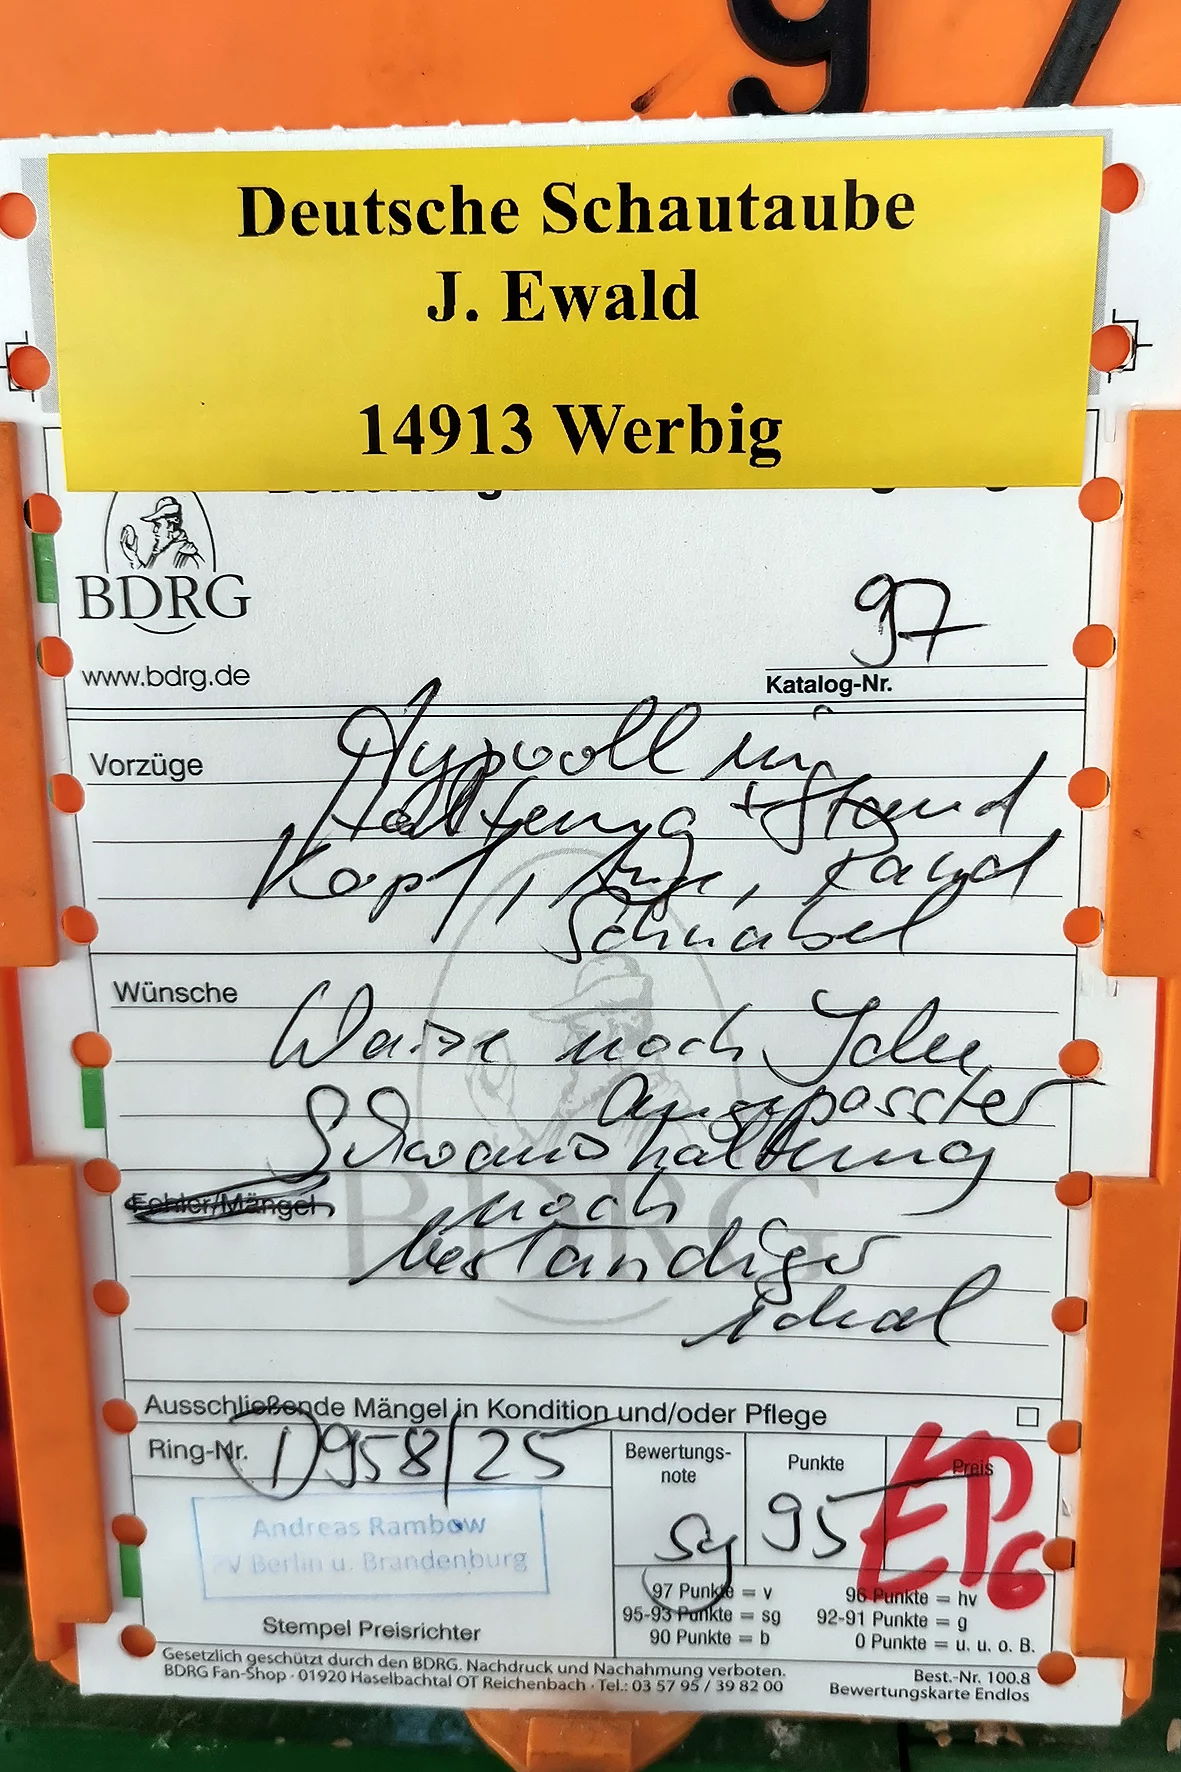 97
Deutsche Schautaube
J. Ewald
14913 Werbig
BDRG
www.bdrg.de
97
Katalog-Nr.
Vorzüge
Typvoll in
Haltung + Stand
Kopf, Auge, Rand
Schnabel
Wünsche
noch
angepasster
Schwanzhaltung
Fehler/Mängel
noch
beständiger
ideal
BDRG
Ausschließende Mängel in Kondition und/oder Pflege
Ring-Nr. D 958/25
Bewertungs-
note
sg
Punkte
95
Preis
EP6
Andreas Rambow
PV Berlin u. Brandenburg
Stempel Preisrichter
97 Punkte = v
96 Punkte = hv
95-93 Punkte = sg
92-91 Punkte = g
90 Punkte = b
0 Punkte = u. u. o. B.
Gesetzlich geschützt durch den BDRG. Nachdruck und Nachahmung verboten.
BDRG Fan-Shop · 01920 Haselbachtal OT Reichenbach · Tel.: 03 57 95 / 39 82 00
Best.-Nr. 100.8
Bewertungskarte Endlos